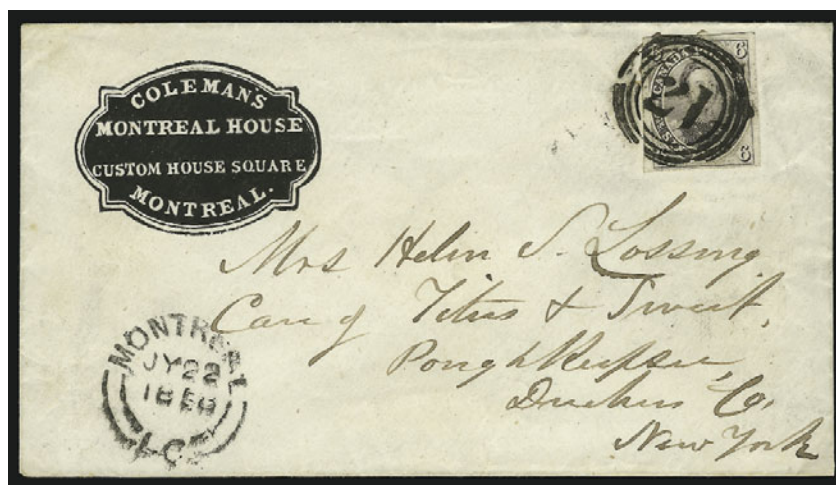 COLEMAN'S
MONTREAL HOUSE
CUSTOM HOUSE SQUARE
MONTREAL.
CANADA
6
21
6
Mrs Helen S. Lossing
Care of Titus & Sweet,
Poughkeepsie,
Duchess Co,
New York
MONTREAL
JY 22
1858
L.C